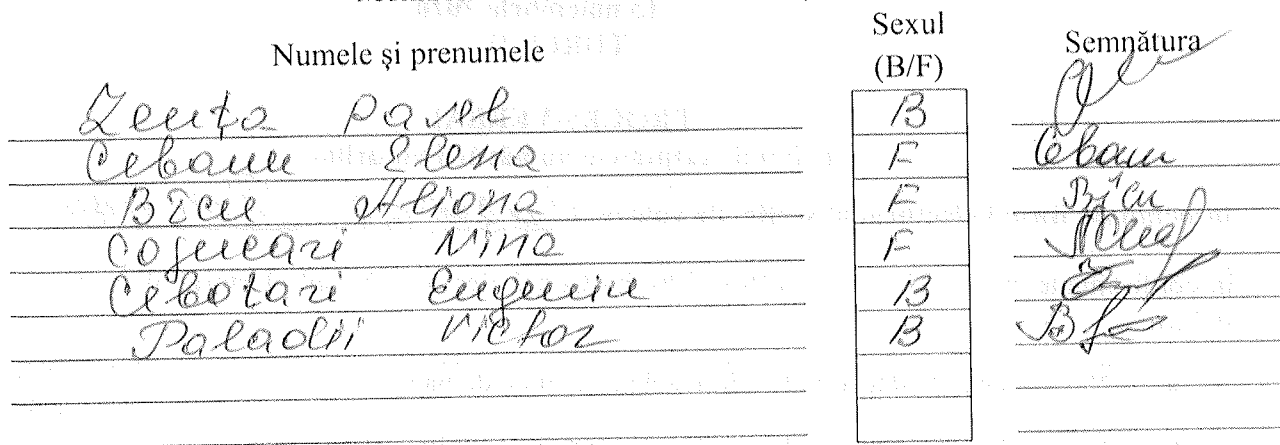 Numele și prenumele Sexul (B/F) Semnătura
Zența Pavel B
Cebanu Elena F Cebanu
Bîcu Aliona F Bîcu
Cojucari Nina F
Cebotari Eugeniu B
Paladii Victor B